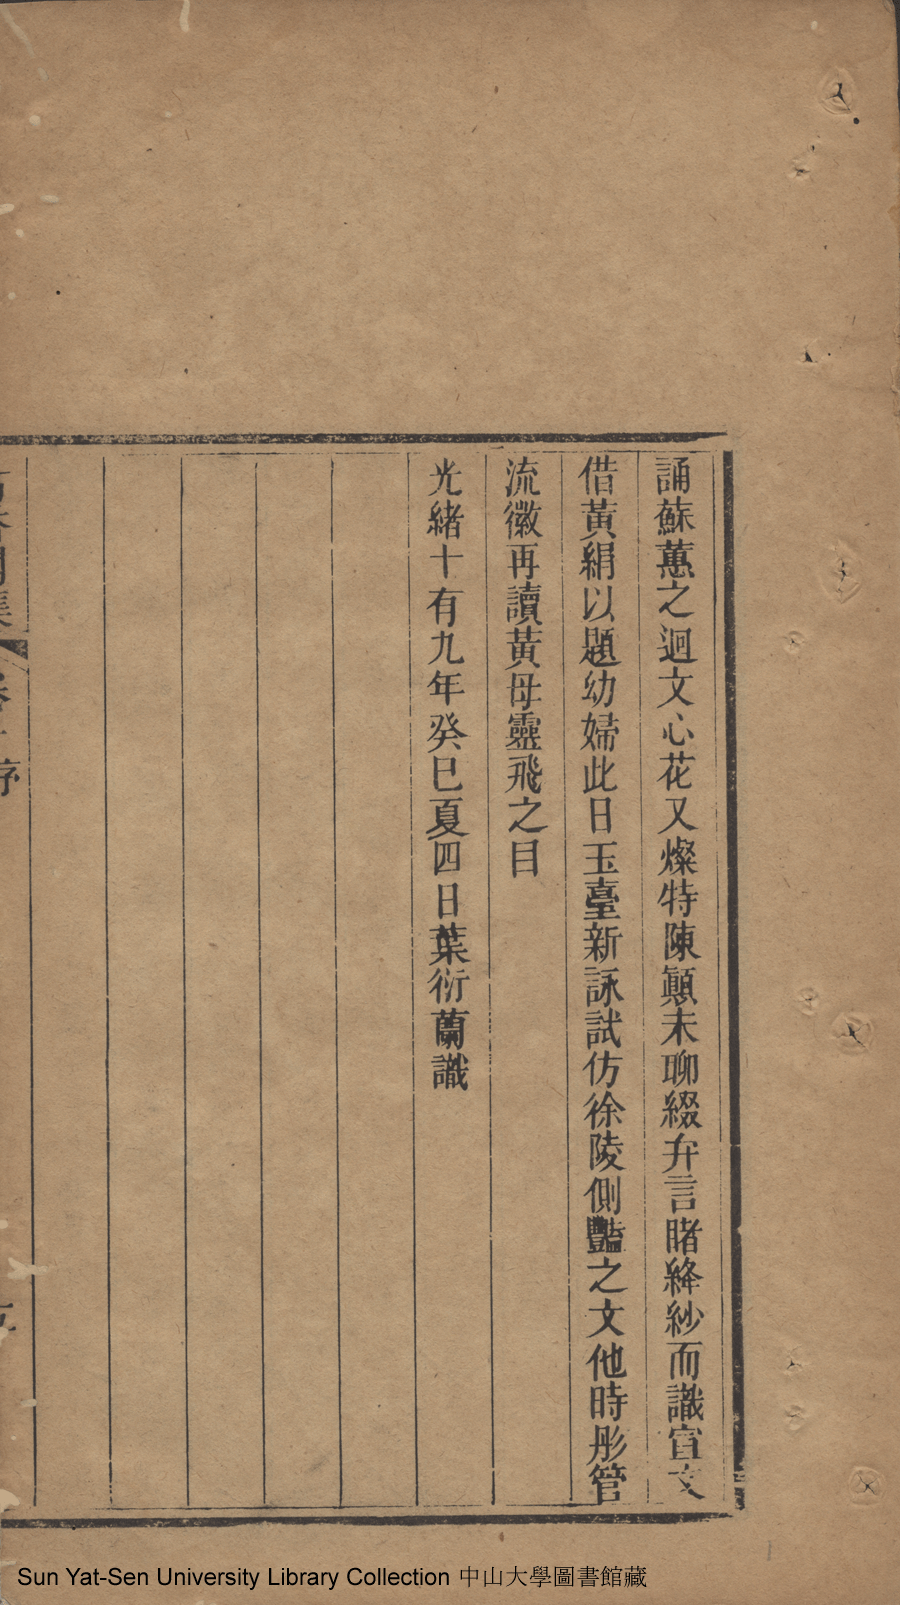 誦蘇蕙之迴文心花又燦特陳顚末聊綴弁言睹絳紗而識宣文
借黃絹以題幼婦此日玉臺新詠試仿徐陵側豔之文他時彤管
流徽再讀黃母靈飛之目
光緒十有九年癸巳夏四日葉衍蘭識
序
Sun Yat-Sen University Library Collection 中山大學圖書館藏